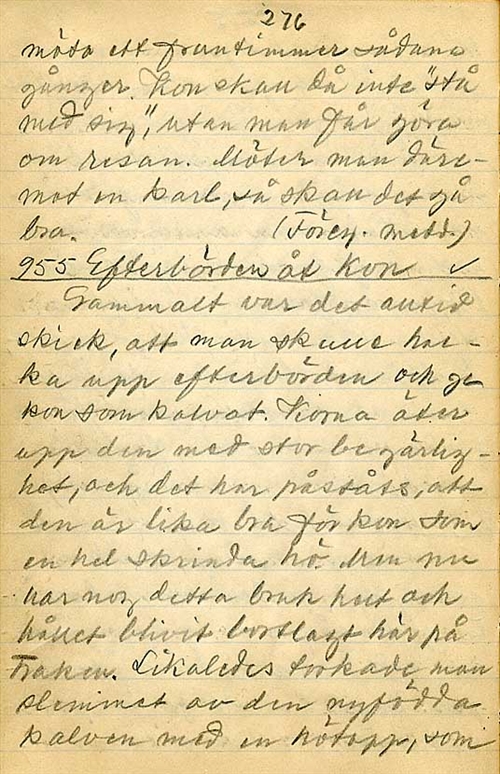 276
möta ett fruntimmer sådana
gånger. Kon skall då inte "stå
med sig", utan man får göra
om resan. Möter man däre-
mot en karl, så skall det gå
bra. (Föreg. medd.)
955 Efterbörden åt kon ✓
Gammalt var det alltid
skick, att man skulle hac-
ka upp efterbörden och ge
kon som kalvat. Korna äter
upp den med stor begärlig-
het, och det har påståts, att
den är lika bra för kon som
en hel skrinda hö. Men nu
har nog detta bruk helt och
hållet blivit bortlagt här på
traken. Likaledes torkade man
slemmet av den nyfödda
kalven med en hötapp, som